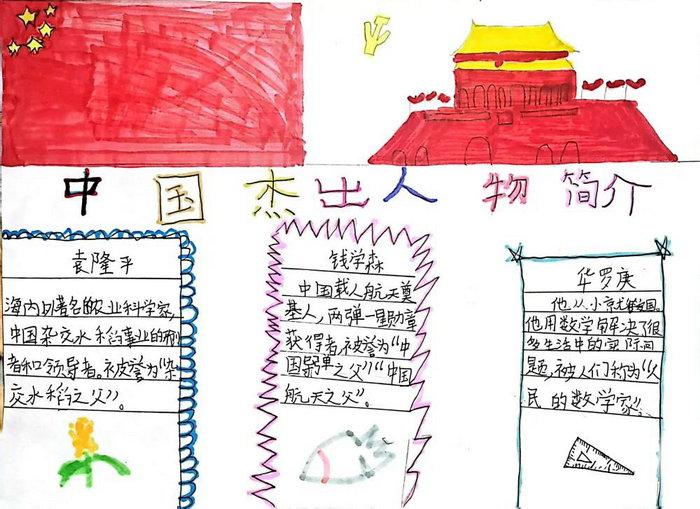 中国杰出人物简介
袁隆平
海内外著名的农业科学家,
中国杂交水稻事业的
者和领导者。被誉为“杂
交水稻之父”。
钱学森
中国载人航天奠
基人,两弹一星勋章
获得者被誉为“中
国导弹之父”“中国
航天之父”。
华罗庚
他从小
他用数学 解决了很
多生活中的实际问
题,被人们称为“人
民的数学家”。